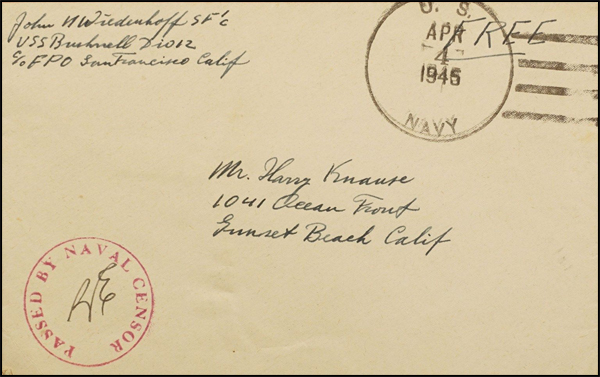 John N Wiedenhoff SF 1/c
USS Bushnell Div 12
c/o FPO San Francisco Calif
FREE
U. S.
APR
4
1945
NAVY
Mr. Harry Knause
1041 Ocean Front
Sunset Beach Calif
PASSED BY NAVAL CENSOR